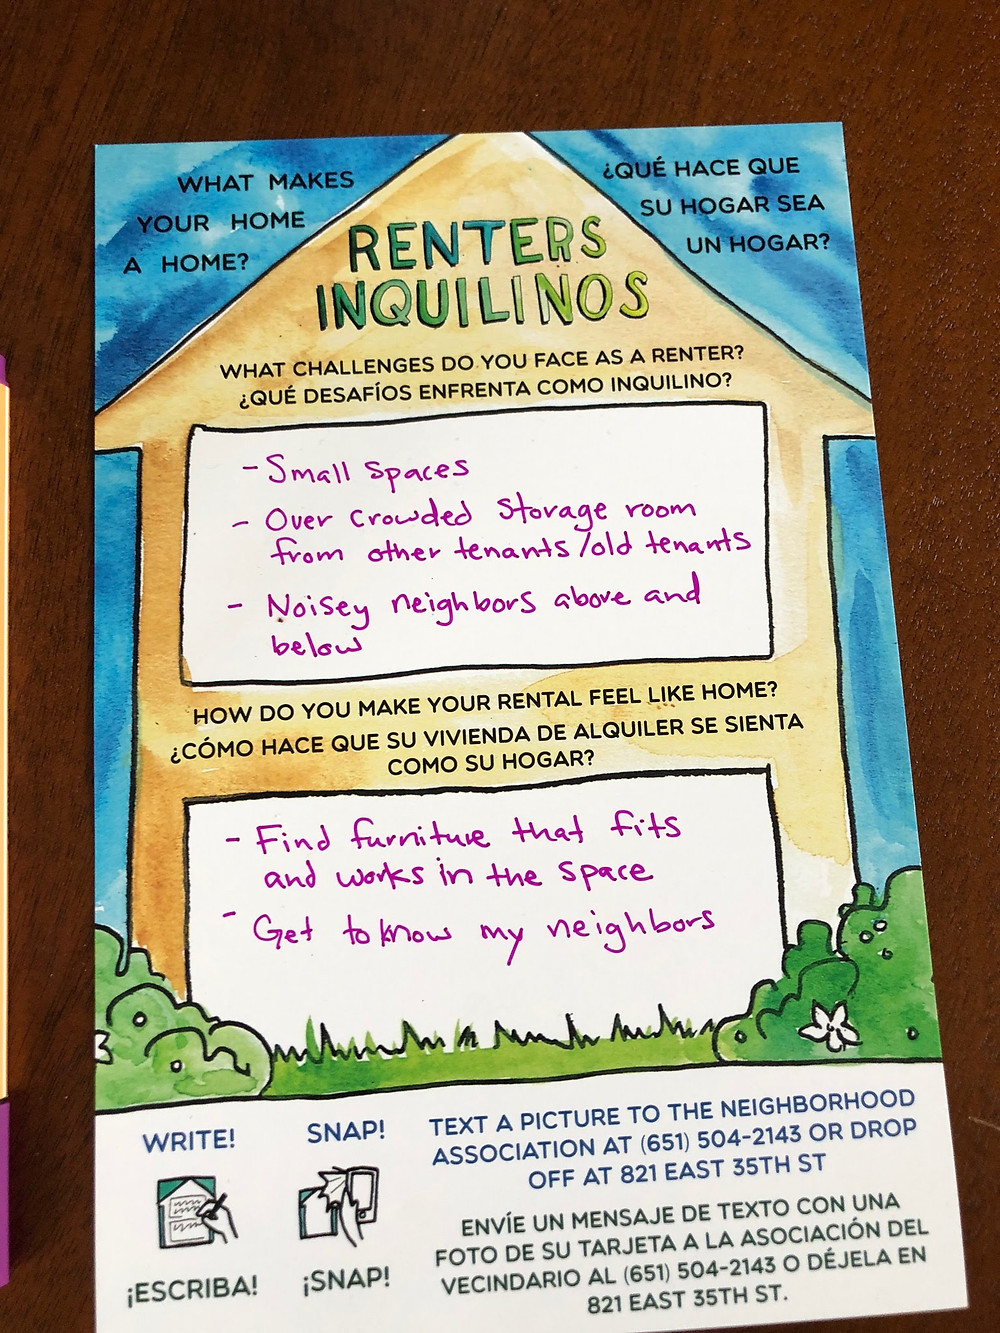 WHAT MAKES
YOUR HOME
A HOME?
¿QUÉ HACE QUE
SU HOGAR SEA
UN HOGAR?
RENTERS
INQUILINOS
WHAT CHALLENGES DO YOU FACE AS A RENTER?
¿QUÉ DESAFÍOS ENFRENTA COMO INQUILINO?
- Small spaces
- Over crowded storage room
from other tenants/old tenants
- Noisey neighbors above and
below
HOW DO YOU MAKE YOUR RENTAL FEEL LIKE HOME?
¿CÓMO HACE QUE SU VIVIENDA DE ALQUILER SE SIENTA
COMO SU HOGAR?
- Find furniture that fits
and works in the space
- Get to know my neighbors
WRITE!
¡ESCRIBA!
SNAP!
¡SNAP!
TEXT A PICTURE TO THE NEIGHBORHOOD
ASSOCIATION AT (651) 504-2143 OR DROP
OFF AT 821 EAST 35TH ST
ENVÍE UN MENSAJE DE TEXTO CON UNA
FOTO DE SU TARJETA A LA ASOCIACIÓN DEL
VECINDARIO AL (651) 504-2143 O DÉJELA EN
821 EAST 35TH ST.